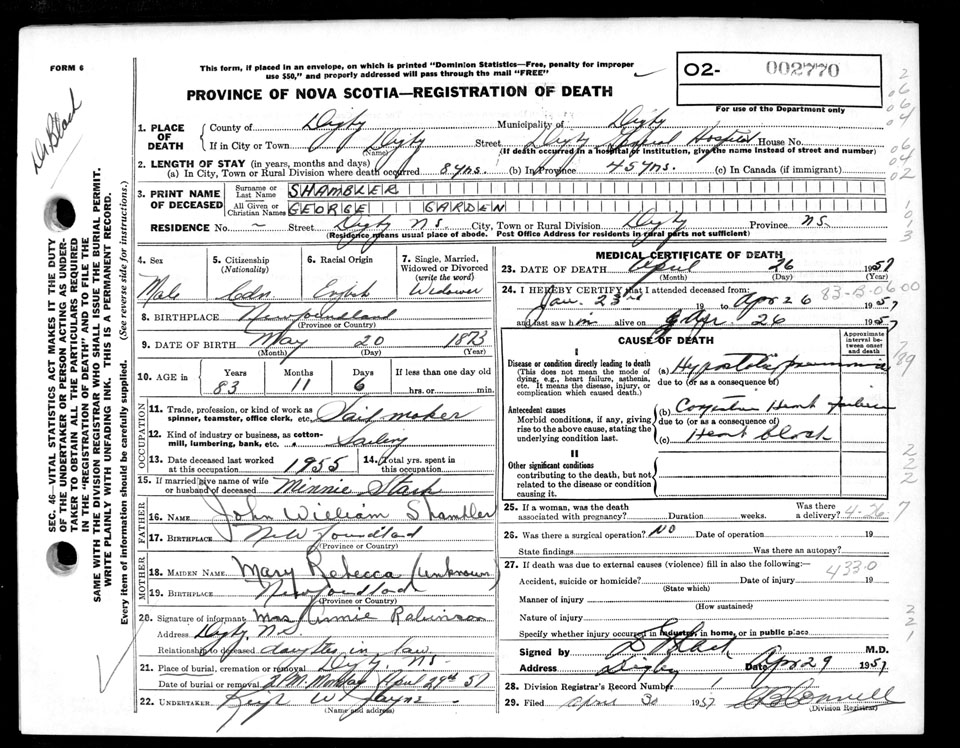 FORM 6
This form, if placed in an envelope, on which is printed "Dominion Statistics—Free, penalty for improper
use $50," and properly addressed will pass through the mail "FREE"
PROVINCE OF NOVA SCOTIA—REGISTRATION OF DEATH
O2- 002770
For use of the Department only
Dr. Black
1. PLACE OF DEATH
County of Digby Municipality of Digby
If in City or Town Digby (Name) Street Digby General Hospital House No.
(If death occurred in a hospital or institution, give the name instead of street and number)
2. LENGTH OF STAY (in years, months and days)
(a) In City, Town or Rural Division where death occurred 8 yrs. (b) In Province 45 yrs. (c) In Canada (if immigrant)
3. PRINT NAME OF DECEASED
Surname or Last Name SHAMBLER
All Given or Christian Names GEORGE GARDEN
RESIDENCE No. – Street Digby N.S. City, Town or Rural Division Digby Province N.S.
(Residence means usual place of abode. Post Office Address for residents in rural parts not sufficient)
4. Sex
Male
5. Citizenship (Nationality)
Cdn
6. Racial Origin
English
7. Single, Married, Widowed or Divorced (write the word)
Widower
8. BIRTHPLACE Newfoundland
(Province or Country)
9. DATE OF BIRTH May 20 1873
(Month) (Day) (Year)
10. AGE in Years Months Days If less than one day old
83 11 6 hrs. or min.
OCCUPATION
11. Trade, profession, or kind of work as spinner, teamster, office clerk, etc. Sail maker
12. Kind of industry or business, as cotton-mill, lumbering, bank, etc. Sailing
13. Date deceased last worked at this occupation 1955 14. Total yrs. spent in this occupation
15. If married give name of wife or husband of deceased Minnie Stark
FATHER
16. NAME John William Shambler
17. BIRTHPLACE Newfoundland
(Province or Country)
MOTHER
18. MAIDEN NAME Mary Rebecca (unknown)
19. BIRTHPLACE Newfoundland
(Province or Country)
20. Signature of informant Mrs Annie Robinson
Address Digby, N.S.
Relationship to deceased daughter in law
21. Place of burial, cremation or removal Digby, N.S.
Date of burial or removal 2 P.M. Monday April 29th 57
22. UNDERTAKER W. Jayne
(Name and address)
MEDICAL CERTIFICATE OF DEATH
23. DATE OF DEATH April 26 1957
(Month) (Day) (Year)
24. I HEREBY CERTIFY that I attended deceased from:
83-B-0600
Jan. 23rd 19 to Apr 26 1957
and last saw him alive on Apr. 26 1957
CAUSE OF DEATH
Approximate interval between onset and death
I
Disease or condition directly leading to death
(This does not mean the mode of dying, e.g., heart failure, asthenia, etc. It means the disease, injury, or complication which caused death.)
(a) Hypostatic pneumonia
due to (or as a consequence of)
Antecedent causes
Morbid conditions, if any, giving rise to the above cause, stating the underlying condition last.
(b) Congestive Heart failure
due to (or as a consequence of)
(c) Heart block
II
Other significant conditions
contributing to the death, but not related to the disease or condition causing it.
25. If a woman, was the death associated with pregnancy? Duration weeks. Was there a delivery? 4-26-7
26. Was there a surgical operation? No Date of operation 19
State findings Was there an autopsy?
27. If death was due to external causes (violence) fill in also the following:—
4330
Accident, suicide or homicide? Date of injury 19
(State which)
Manner of injury
(How sustained)
Nature of injury
Specify whether injury occurred in industry, in home, or in public place
Signed by Black M.D.
Address Digby Date Apr 29 1957
28. Division Registrar's Record Number
29. Filed April 30 1957
(Division Registrar)
SEC. 46—VITAL STATISTICS ACT MAKES IT THE DUTY
OF THE UNDERTAKER OR PERSON ACTING AS UNDER-
TAKER TO OBTAIN ALL THE PARTICULARS REQUIRED
IN THE "REGISTRATION OF DEATH" AND TO FILE THE
SAME WITH THE DIVISION REGISTRAR WHO SHALL ISSUE THE BURIAL PERMIT.
WRITE PLAINLY WITH UNFADING INK. THIS IS A PERMANENT RECORD.
Every item of Information should be carefully supplied. (See reverse side for instructions.)